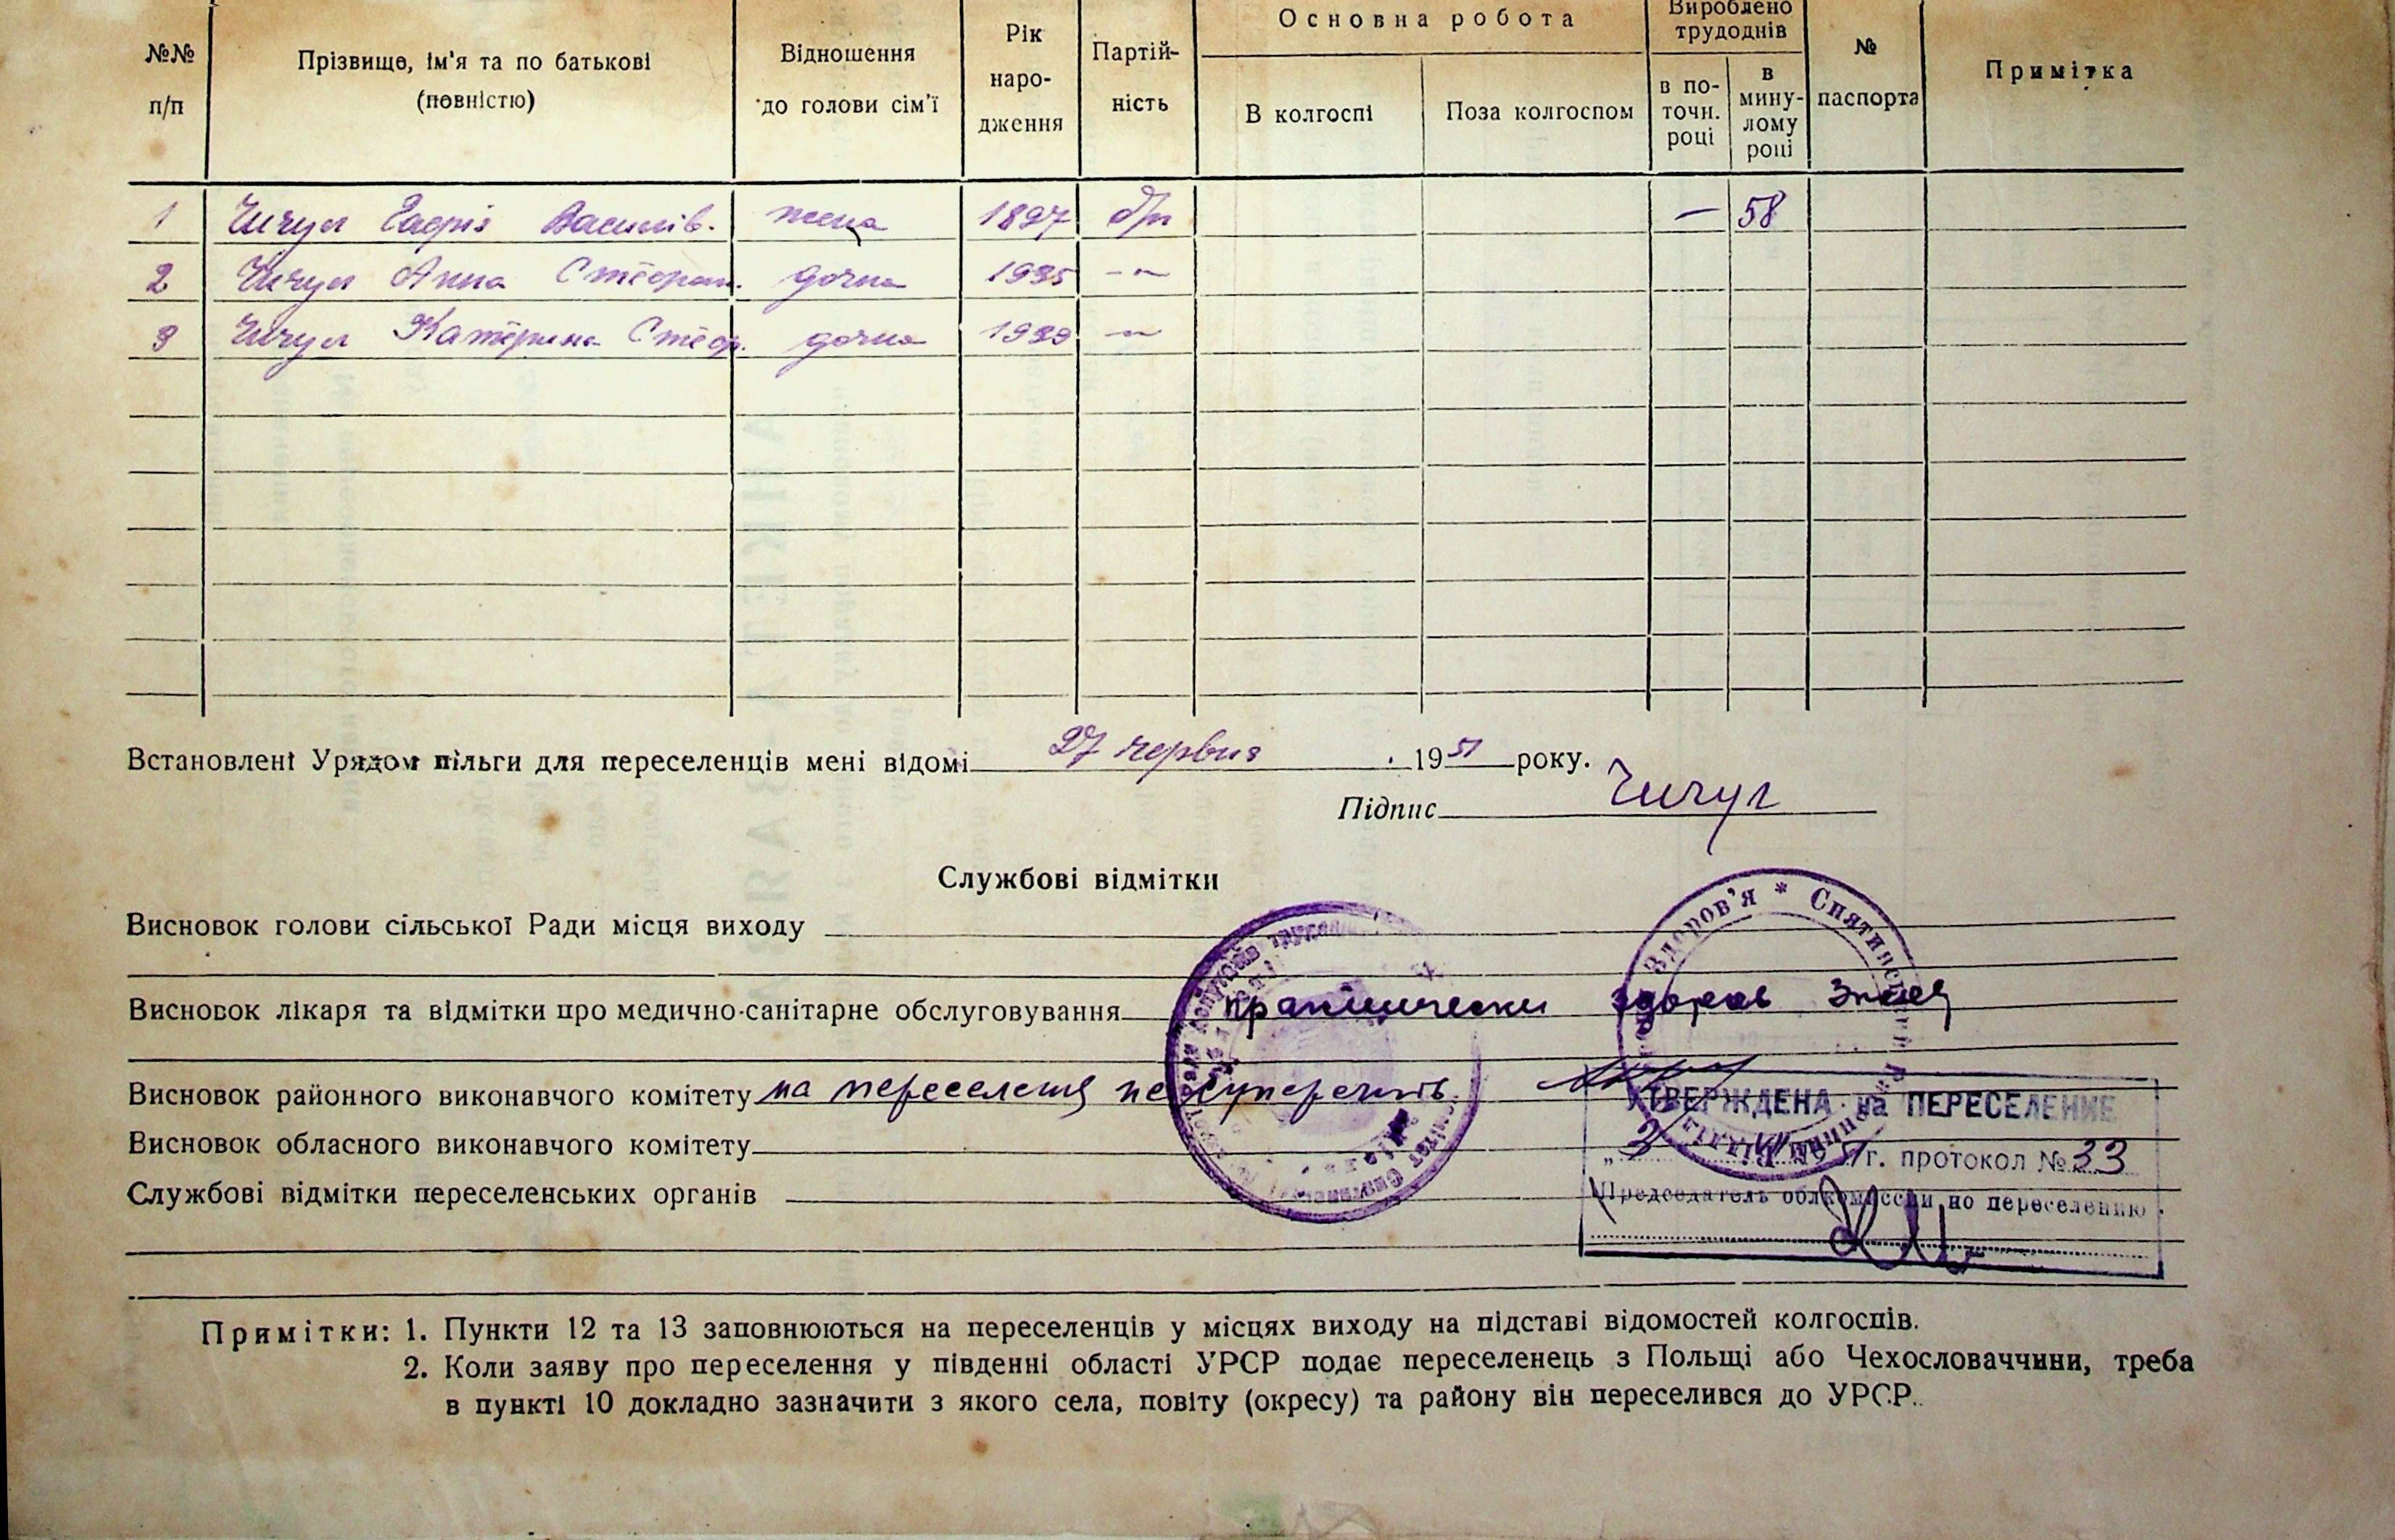 №№ п/п
Прізвище, ім'я та по батькові (повністю)
Відношення до голови сім'ї
Рік народження
Партійність
Основна робота
В колгоспі
Поза колгоспом
Вироблено трудоднів
в поточн. році
в минулому році
№ паспорта
Примітка
1 Чичул Василів. жена 1897 б/п — 58
2 Чичул Анна Стефан. дочка 1935 -〃-
3 Чичул Катерина Стеф. дочка 1939 -〃-
Встановлені Урядом пільги для переселенців мені відомі 27 червня 1951 року.
Підпис Чичул
Службові відмітки
Висновок голови сільської Ради місця виходу
Висновок лікаря та відмітки про медично-санітарне обслуговування практически здоров
Висновок районного виконавчого комітету на переселення не суперечить
Висновок обласного виконавчого комітету
УТВЕРЖДЕНА на ПЕРЕСЕЛЕНИЕ
г. протокол № 33
Службові відмітки переселенських органів
Председатель облкомиссии по переселению
Примітки: 1. Пункти 12 та 13 заповнюються на переселенців у місцях виходу на підставі відомостей колгоспів.
2. Коли заяву про переселення у південні області УРСР подає переселенець з Польщі або Чехословаччини, треба
в пункті 10 докладно зазначити з якого села, повіту (окресу) та району він переселився до УРСР.